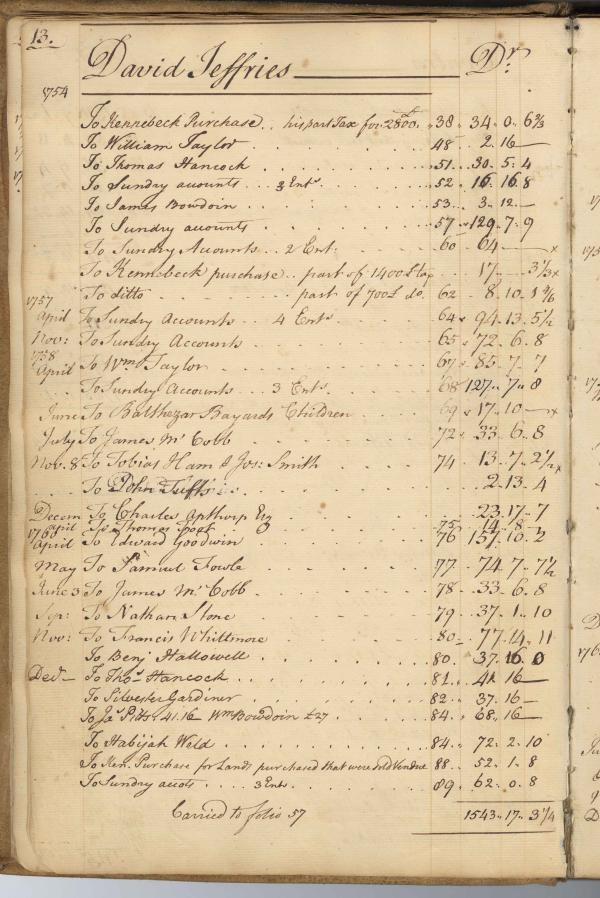 13.
David Jeffries Dr.
1754
To Kennebeck Purchase .. his part Tax for 2800£ 38 34 .. 0 .. 6⅔
To William Taylor 48 .. 2 .. 16 —
To Thomas Hancock 51 .. 30 .. 5 .. 4
To Sunday accounts ... 3 Ents 52 .. 16 .. 16 .. 8
To James Bowdoin 53 .. 3 .. 12 —
To Sundry accounts 57 129 .. 7 .. 9
To Sundry Accounts .. 2 Ent: 60 64 — x
To Kennebeck purchase .. part of 1400£ tax 17 .. 3⅓ x
To ditto part of 700£ do. 62 8 .. 10 .. 1
1757
April To Sundry Accounts 4 Ents 64 x 94 .. 13 .. 5½
Nov: To Sundry Accounts 65 72 .. 6 .. 8
1758
April To Wm Taylor 67 85 .. 7 .. 7
To Sundry Accounts 3 Ents 68 127 .. 7 .. 8
June To Balthezar Bayards Children 69 17 .. 10 — x
July To James McCobb 72 33 .. 6 .. 8
Nov. 8 To Tobias Ham & Jos: Smith 74 13 .. 7 .. 2½ x
To John Tufts 2 .. 13 .. 4
Decem To Charles Apthorp Esq 23 .. 17 .. 7
April To Thomas 75 14 .. 8
1760
April To Edward Goodwin 76 157 .. 10 .. 2
May To Samuel Fowle 77 74 .. 7 .. 7½
June 3 To James McCobb 78 33 .. 6 .. 8
Sep: To Nathan Stone 79 37 .. 1 .. 10
Nov: To Francis Whittmore 80 77 .. 14 .. 11
To Benj Hallowell 80 37 .. 16 .. 0
Decr To Thos Hancock 81 41 .. 16 —
To Silvester Gardiner 82 37 .. 16 —
To Jas Pitts 41.16 Wm Bowdoin £27 84 68 .. 16 —
To Habijah Weld 84 72 .. 2 .. 10
To Ken. Purchase for Lands purchased that were sold Vendue 88 52 .. 1 .. 8
To Sundry accots .... 3 Ents 89 62 .. 0 .. 8
Carried to folio 57 1543 .. 17 .. 3¼